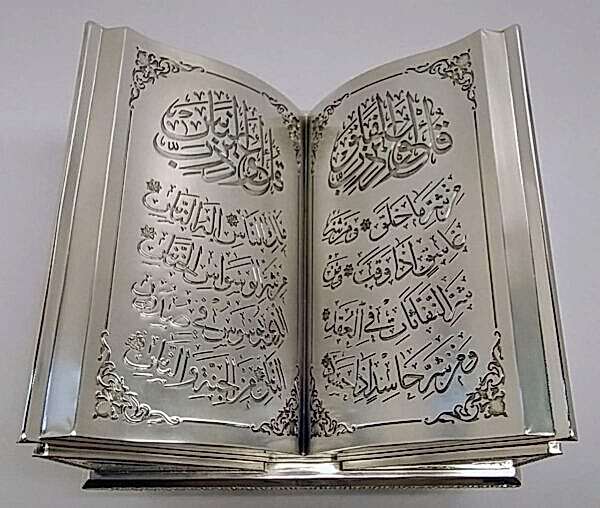 قل اعوذ برب الفلق
من شر ما خلق ومن شر
غاسق اذا وقب ومن
شر النفاثات في العقد
ومن شر حاسد اذا حسد
قل اعوذ برب الناس
ملك الناس اله الناس
من شر الوسواس الخناس
الذي يوسوس في صدور
الناس من الجنة والناس